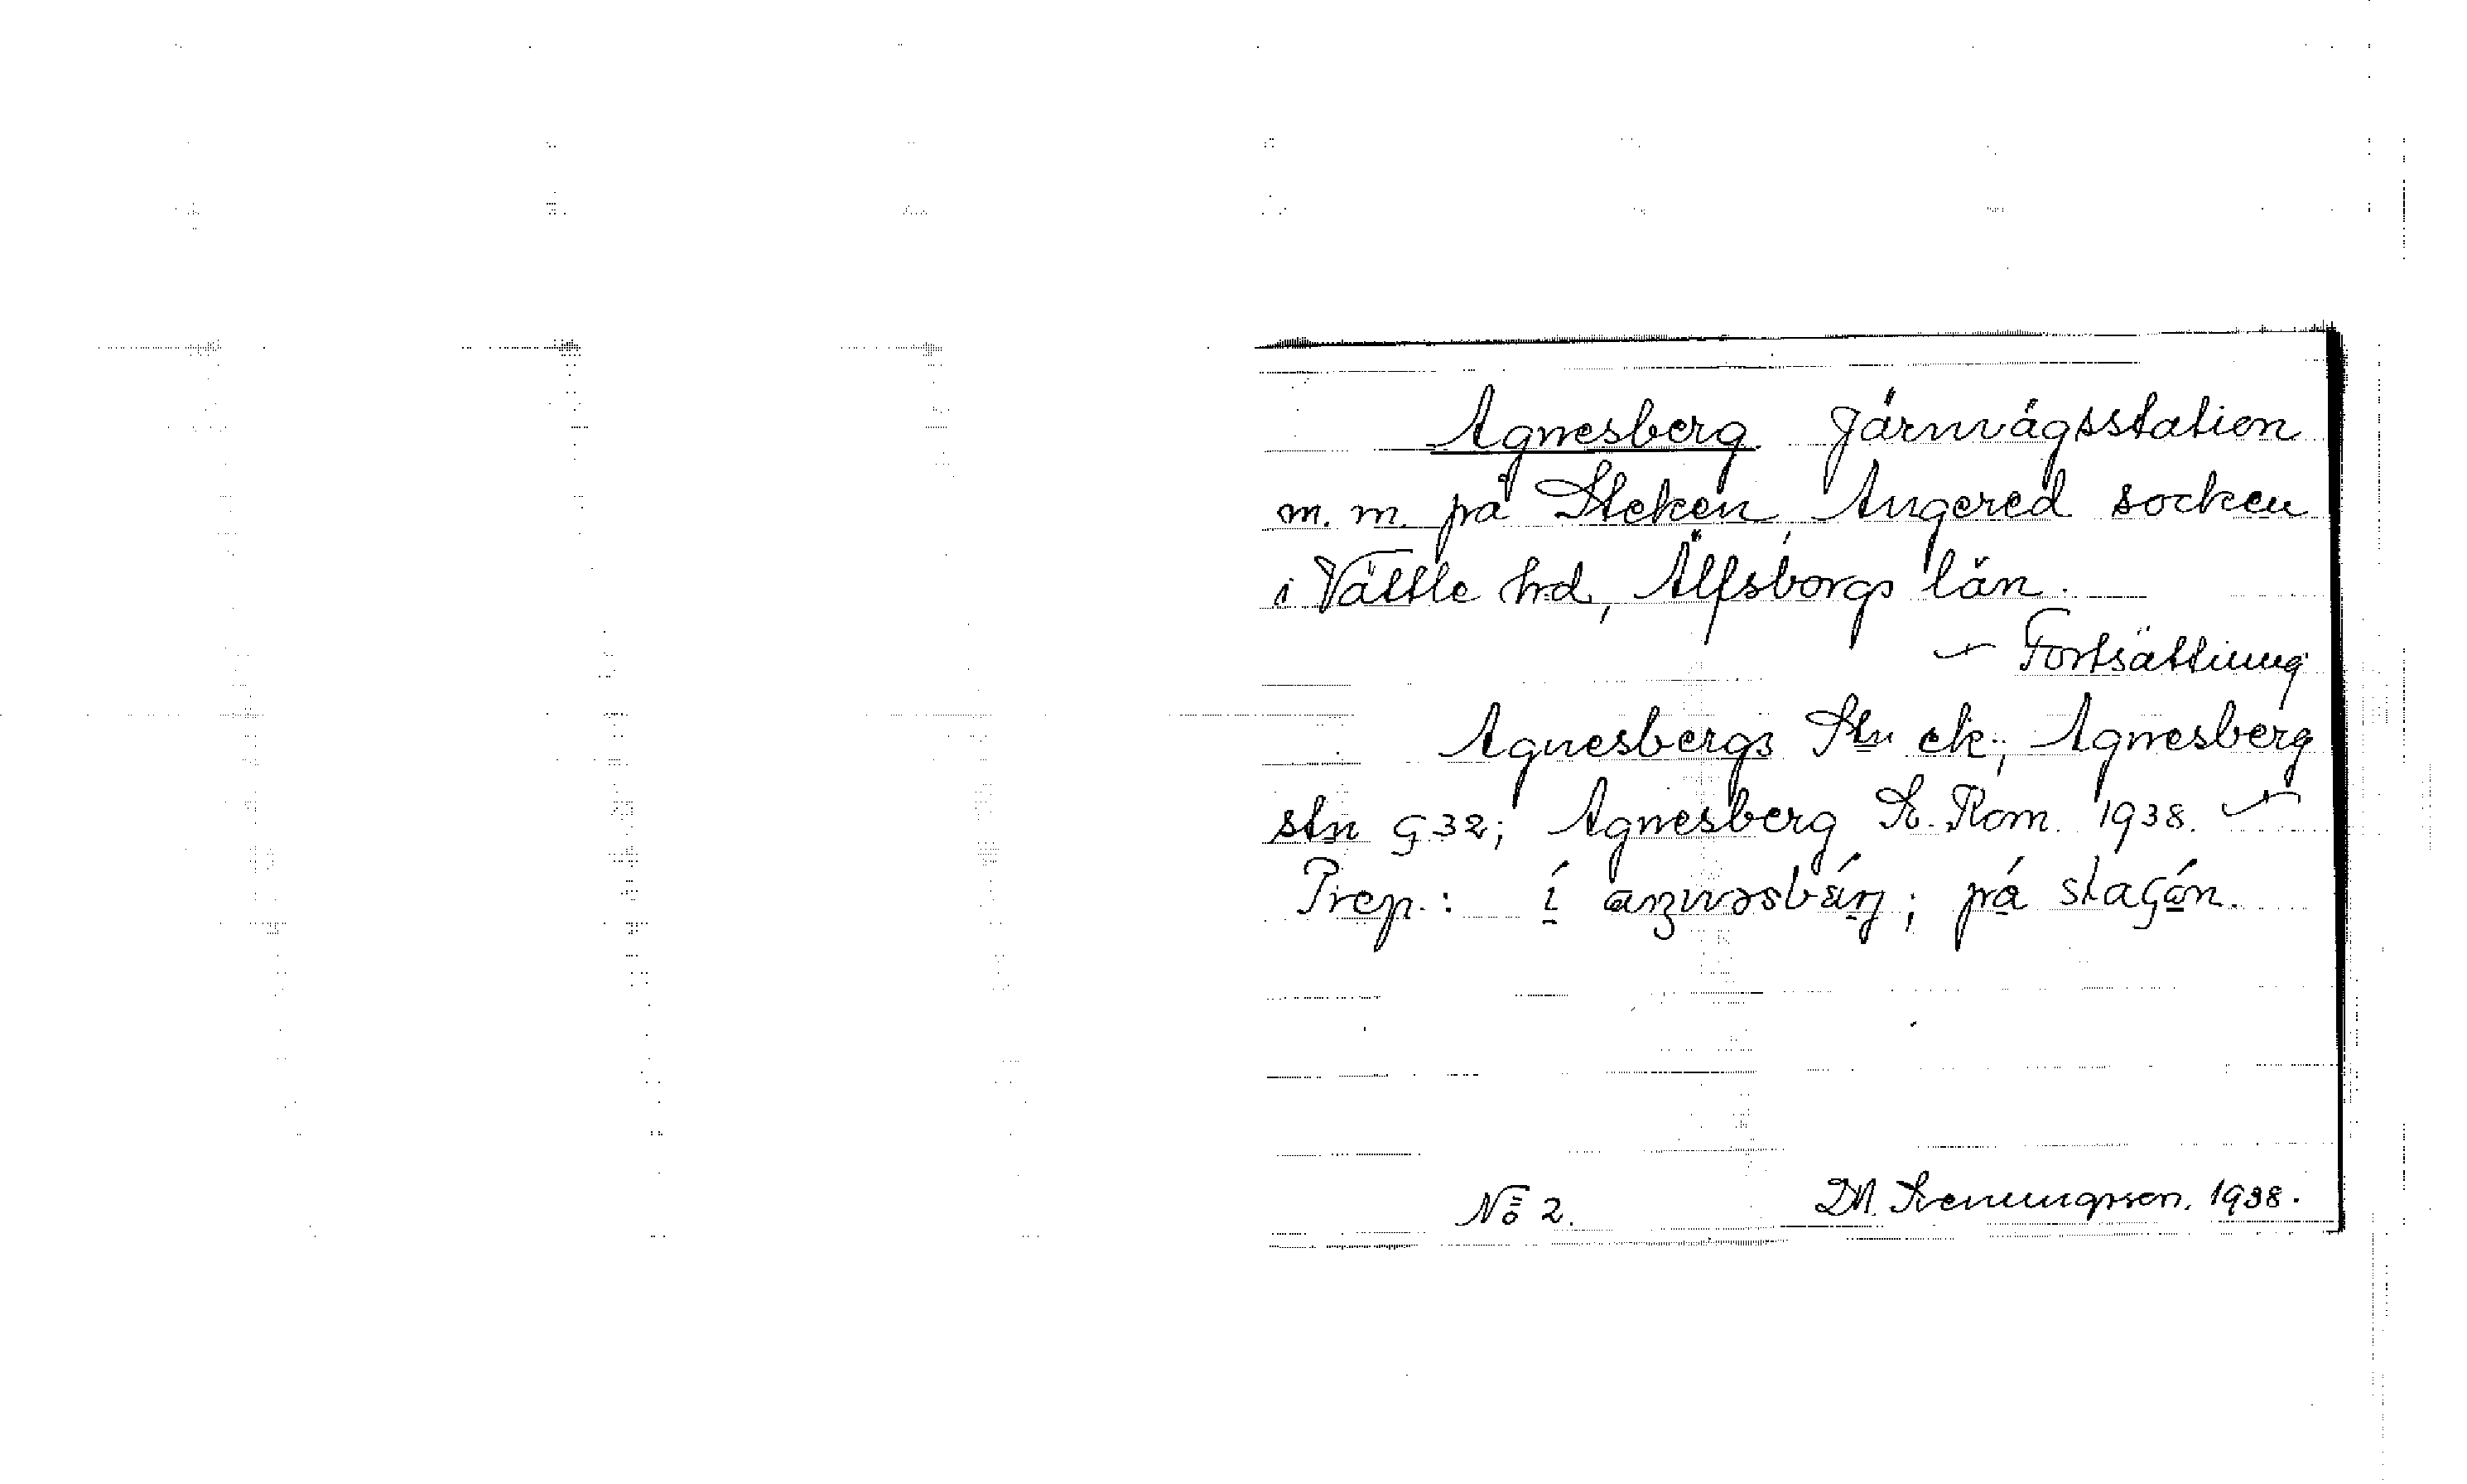 Agnesberg Järnvägsstation
m. m. på Steken, Angered socken
i Vättle hd, Älfsborgs län.
– Fortsättning
Agnesbergs Stn ek; Agnesberg
stn G 32; Agnesberg R. Kom. 1938.
Prep.: í på staçón.
No 2. 1938.